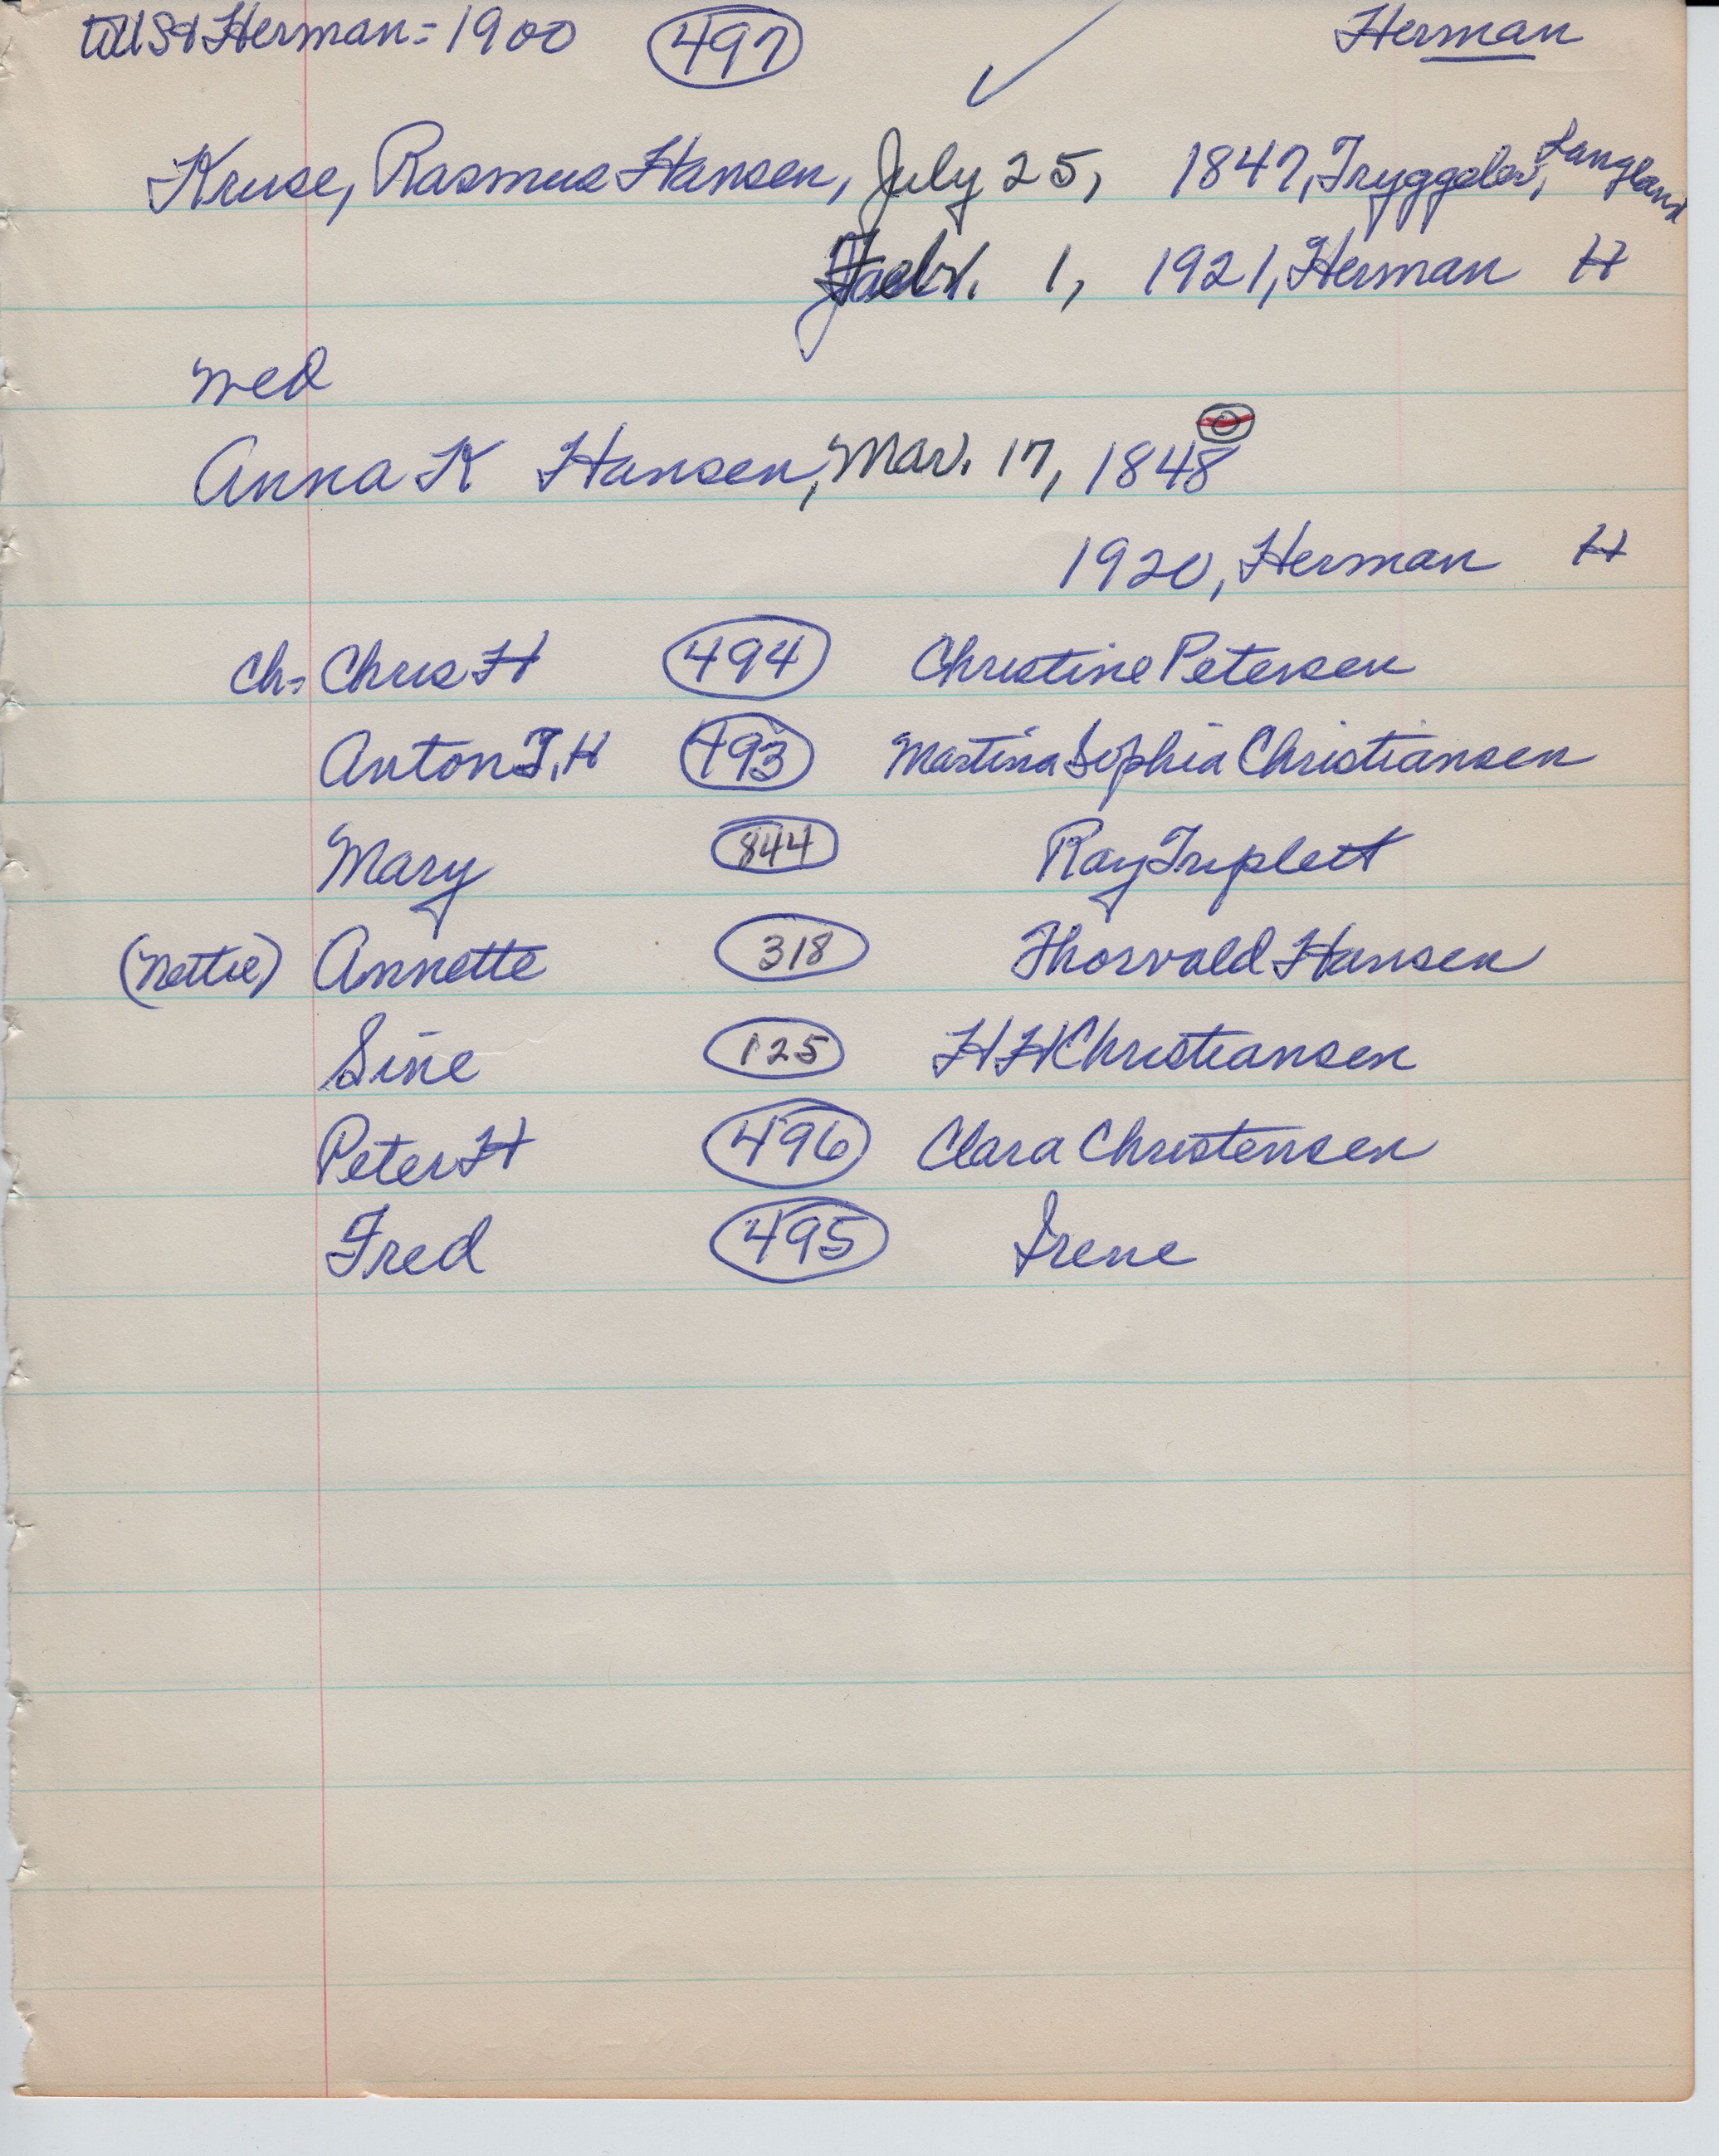 to US & Herman = 1900 497 Herman
Kruse, Rasmus Hansen, July 25, 1847, Tryggelev, Langland
Febr. 1, 1921, Herman H
wed
Anna K Hansen, Mar. 17, 1848
1920, Herman H
ch= Chris H 494 Christine Petersen
Anton T, H 493 Martina Sophia Christiansen
Mary 844 Ray Triplett
(Nettie) Annette 318 Thorvald Hansen
Sine 125 H H Christiansen
Peter H 496 Clara Christensen
Fred 495 Irene